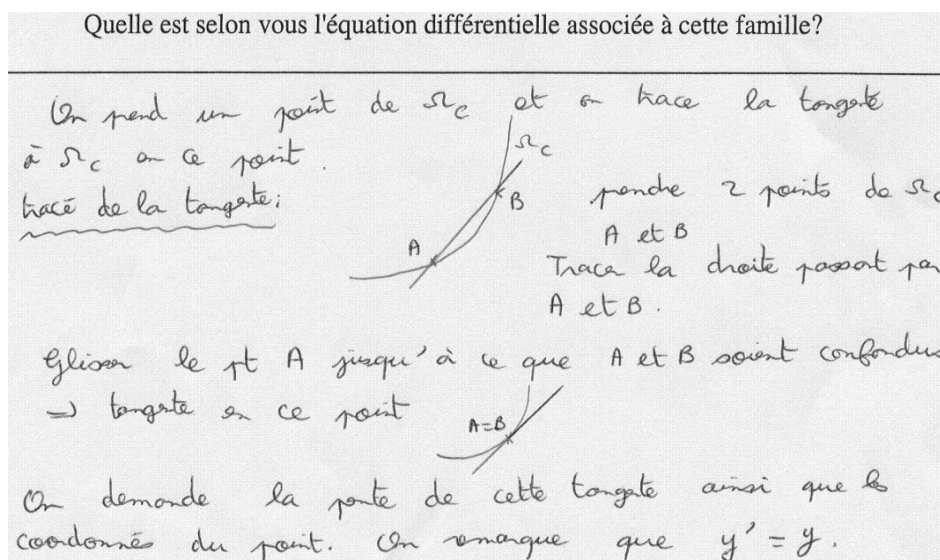 Quelle est selon vous l'équation différentielle associée à cette famille?
On prend un point de Ω_C et on trace la tangente
à Ω_C en ce point.
tracé de la tangente:
Ω_C
B
A
prendre 2 points de Ω_C
A et B
Tracer la droite passant par
A et B.
Glisser le pt A jusqu'à ce que A et B soient confondus
⇒ tangente en ce point
A=B
On demande la pente de cette tangente ainsi que les
coordonnés du point. On remarque que y' = y.